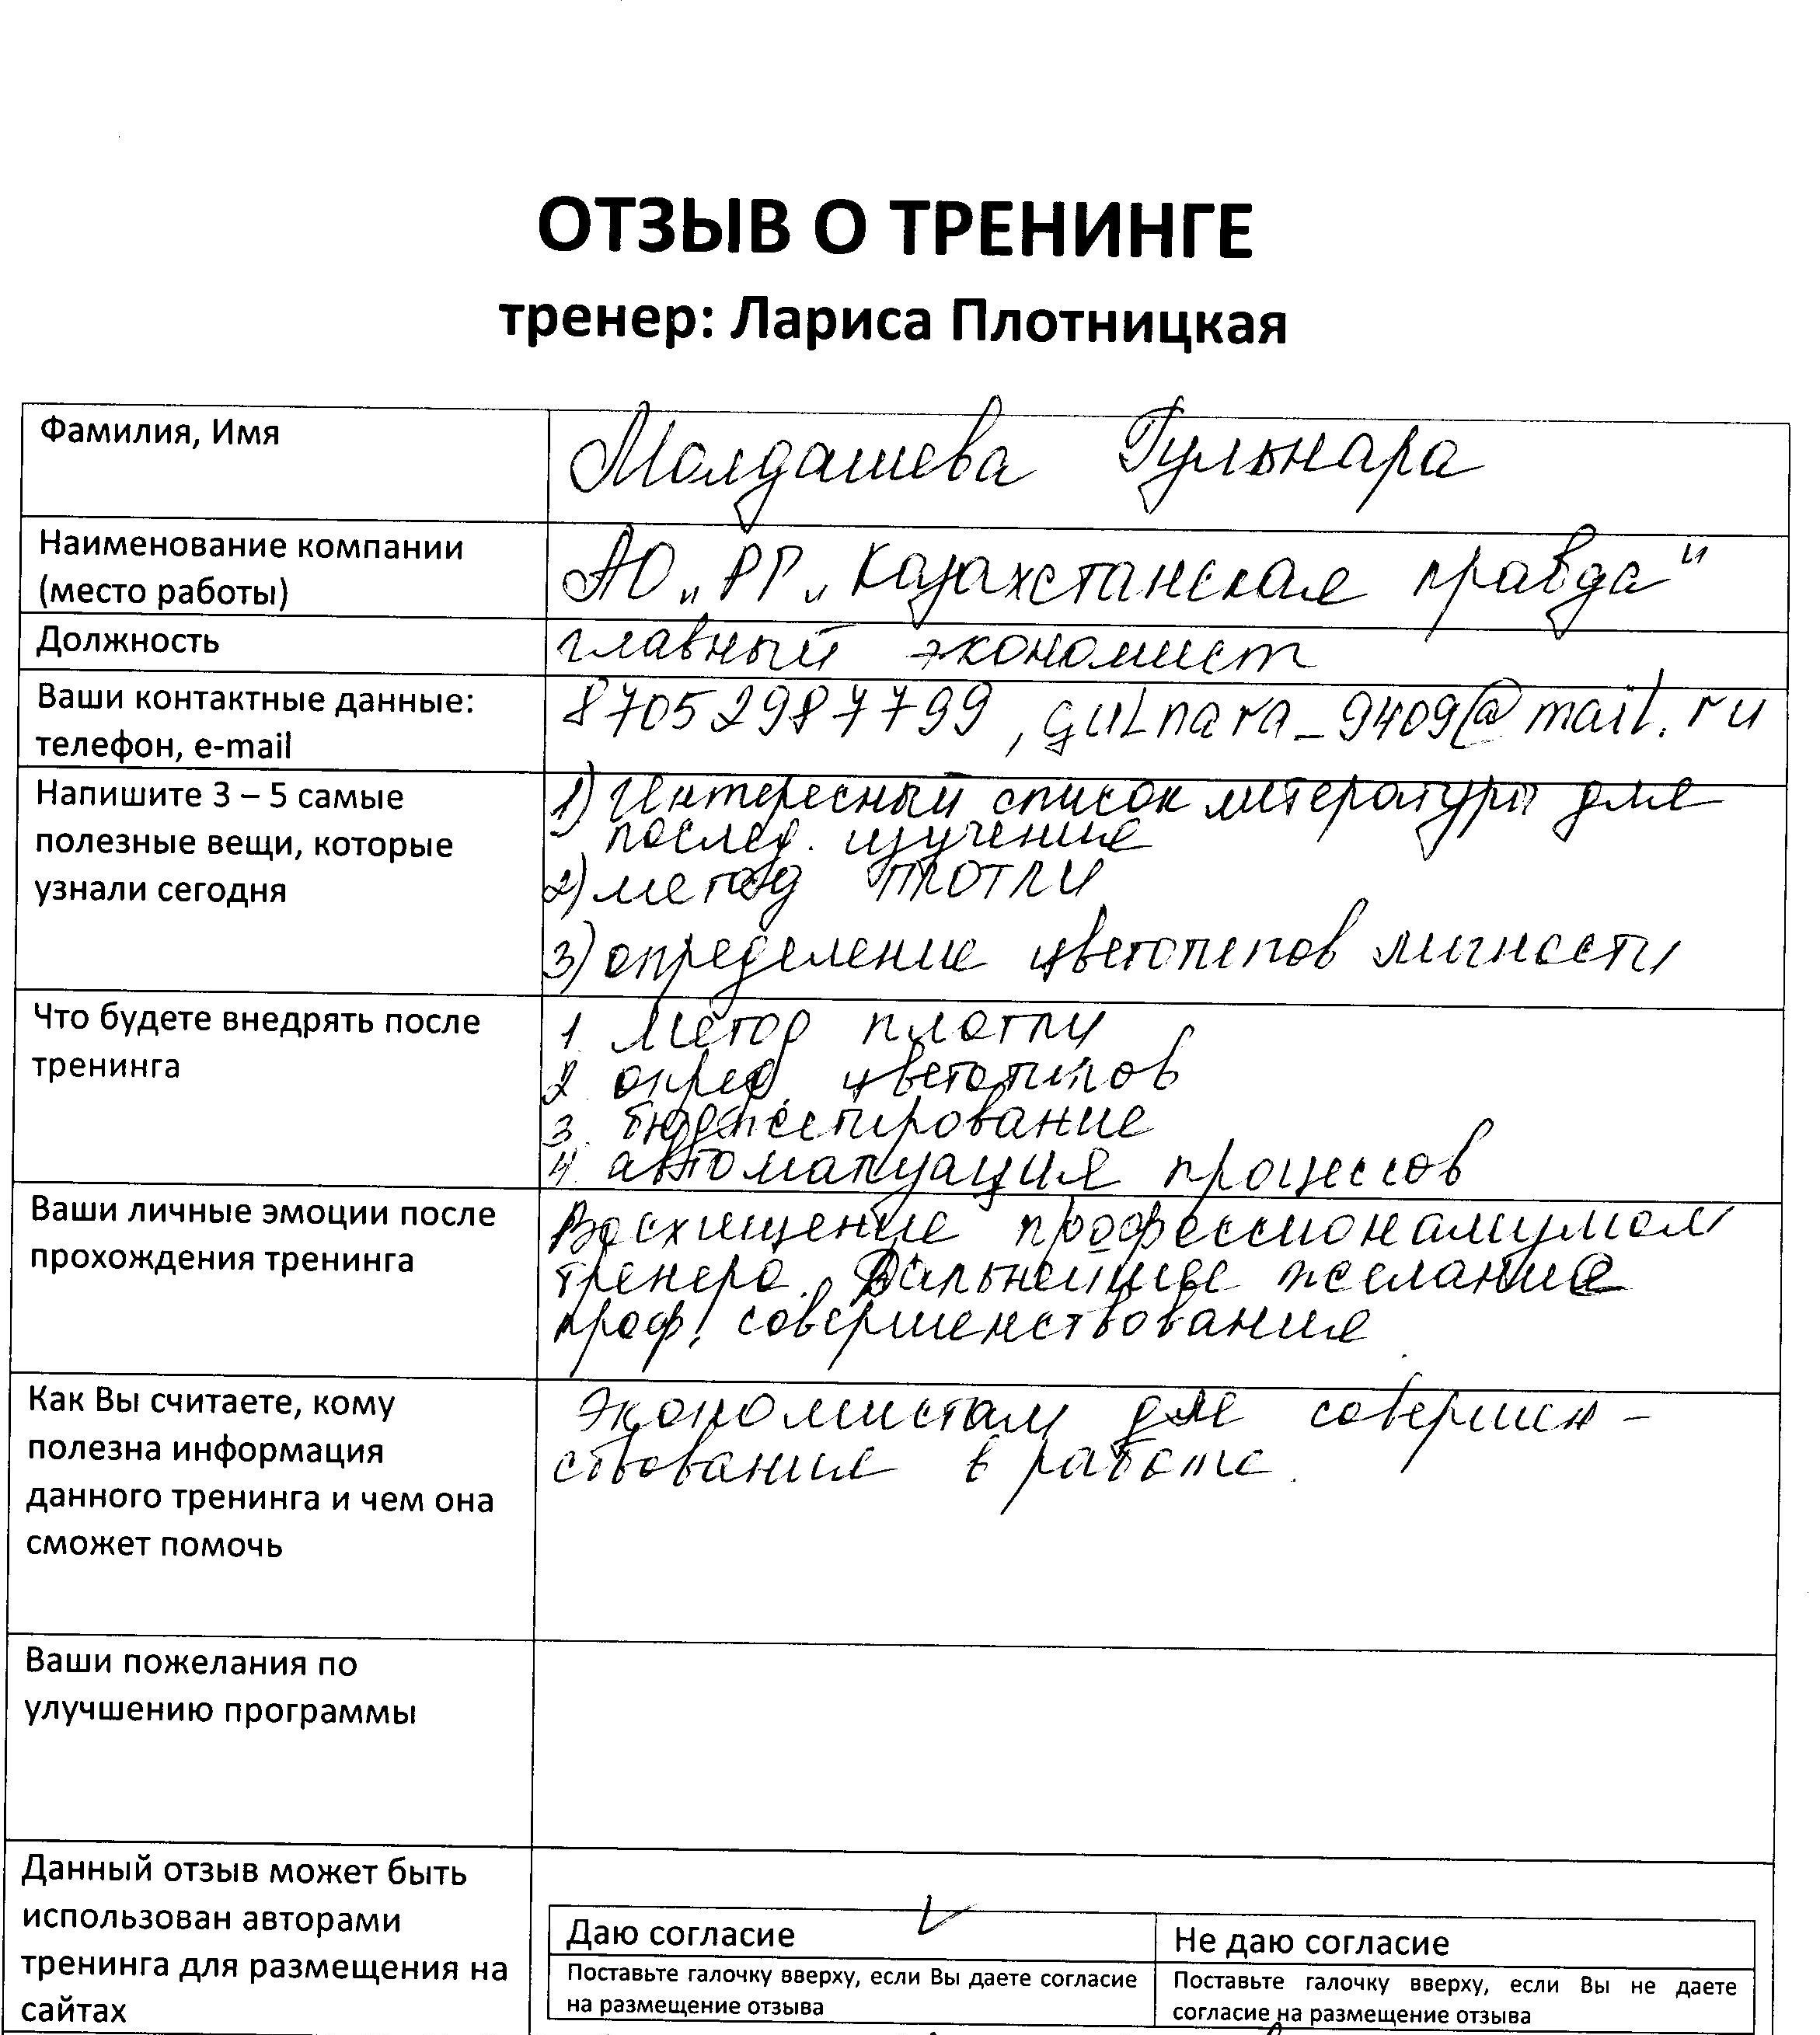 ОТЗЫВ О ТРЕНИНГЕ
тренер: Лариса Плотницкая
Фамилия, Имя
Молдашева Гульнара
Наименование компании
(место работы)
АО „РГ „Казахстанская правда"
Должность
главный экономист
Ваши контактные данные:
телефон, e-mail
87052987799, gulnara_9409@mail.ru
Напишите 3 – 5 самые
полезные вещи, которые
узнали сегодня
1) Интересный список литературы для
послед. изучения
2) метод плотли
3) определение цветотипов личности
Что будете внедрять после
тренинга
1 Метод плотли
2 опред. цветотипов
3. бюджетирование
4. автоматизация процессов
Ваши личные эмоции после
прохождения тренинга
Восхищение профессионализмом
тренера. Дальнейшее желание
проф. совершенствования
Как Вы считаете, кому
полезна информация
данного тренинга и чем она
сможет помочь
Экономистам для совершен-
ствования в работе.
Ваши пожелания по
улучшению программы
Данный отзыв может быть
использован авторами
тренинга для размещения на
сайтах
Даю согласие
Поставьте галочку вверху, если Вы даете согласие
на размещение отзыва
Не даю согласие
Поставьте галочку вверху, если Вы не даете
согласие на размещение отзыва